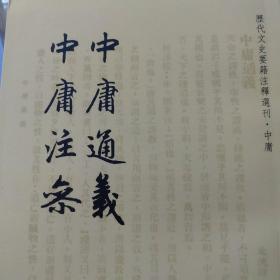 歷代文史要籍注釋選刊·中庸
中庸通義
中庸注參